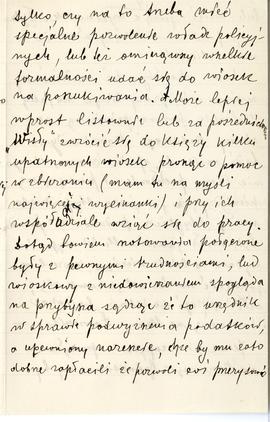 tylko, czy na to trzeba mieć
specjalne pozwolenie władz policyj-
nych, lub też ominąwszy wszelkie
formalności udać się do wiosek
na poszukiwania. A może lepiej
wprost listownie lub za pośrednictwem
"Wisły" zwrócić się do księży kilku
upatrzonych wiosek prosząc o pomoc
w zbieraniu (mam tu na myśli
najwięcej wycinanki) i przy ich
współudziale wziąć się do pracy.
Dotąd bowiem notowania połączone
były z pewnymi trudnościami, lud
wioskowy z niedowierzaniem spogląda
na przybysza sądząc że to urzędnik
w sprawie podwyższenia podatków,
a upewniony nareszcie, chce by mu za to
dobrze zapłacili że pozwoli coś przerysować